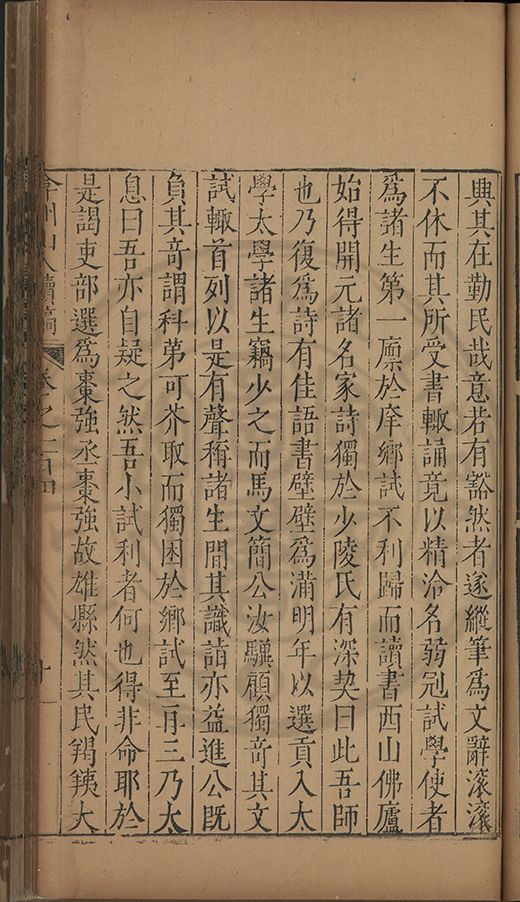 典其在勤民哉意若有豁然者遂縱筆爲文辭滚滚
不休而其所受書輙誦竟以精洽名弱冠試學使者
爲諸生第一廪於庠鄉試不利歸而讀書西山佛廬
始得開元諸名家詩獨於少陵氏有深契曰此吾師
也乃復爲詩有佳語書壁壁爲滿明年以選貢入太
學太學諸生竊少之而馬文簡公汝驥顧獨竒其文
試輙首列以是有聲稱諸生間其識詣亦益進公旣
負其竒謂科第可芥取而獨困於鄉試至再三乃太
息曰吾亦自疑之然吾小試利者何也得非命耶於
是謁吏部選爲棗強丞棗強故雄縣然其民羯羠大
弇州山人續稿 卷之一百四 十一